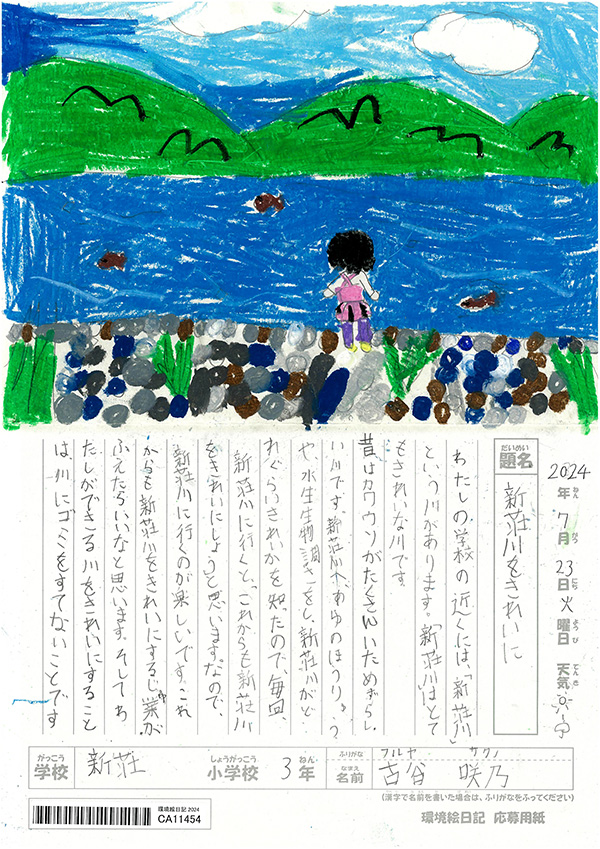 2024年7月23日火曜日 天気
ねん がつ にち ようび てんき
だいめい
題名
新荘川をきれいに
わたしの学校の近くには、「新荘川」
という川があります。「新荘川はとて
もきれいな川です。
昔はカワウソがたくさんいためずらし
い川です。新荘川へ、あゆのほうりゅう
や、水生生物調させをし、新荘川がど
れぐらいきれいかを知ったので、毎回、
新荘川に行くと、「これからも新荘川
をきれいにしよう」と思います。なので、
新荘川に行くのが楽しいです。これ
からも新荘川をきれいにするじゅ業が
ふえたらいいなと思います。そしてわ
たしができる川をきれいにすること
は、川にゴミをすてないことです
がっこう しょうがっこう ねん
学校 新荘 小学校 3年
ふりがな フルヤ サクノ
なまえ
名前 古谷 咲乃
(漢字で名前を書いた場合は、ふりがなをふってください)
環境絵日記 2024
CA11454
環境絵日記 応募用紙